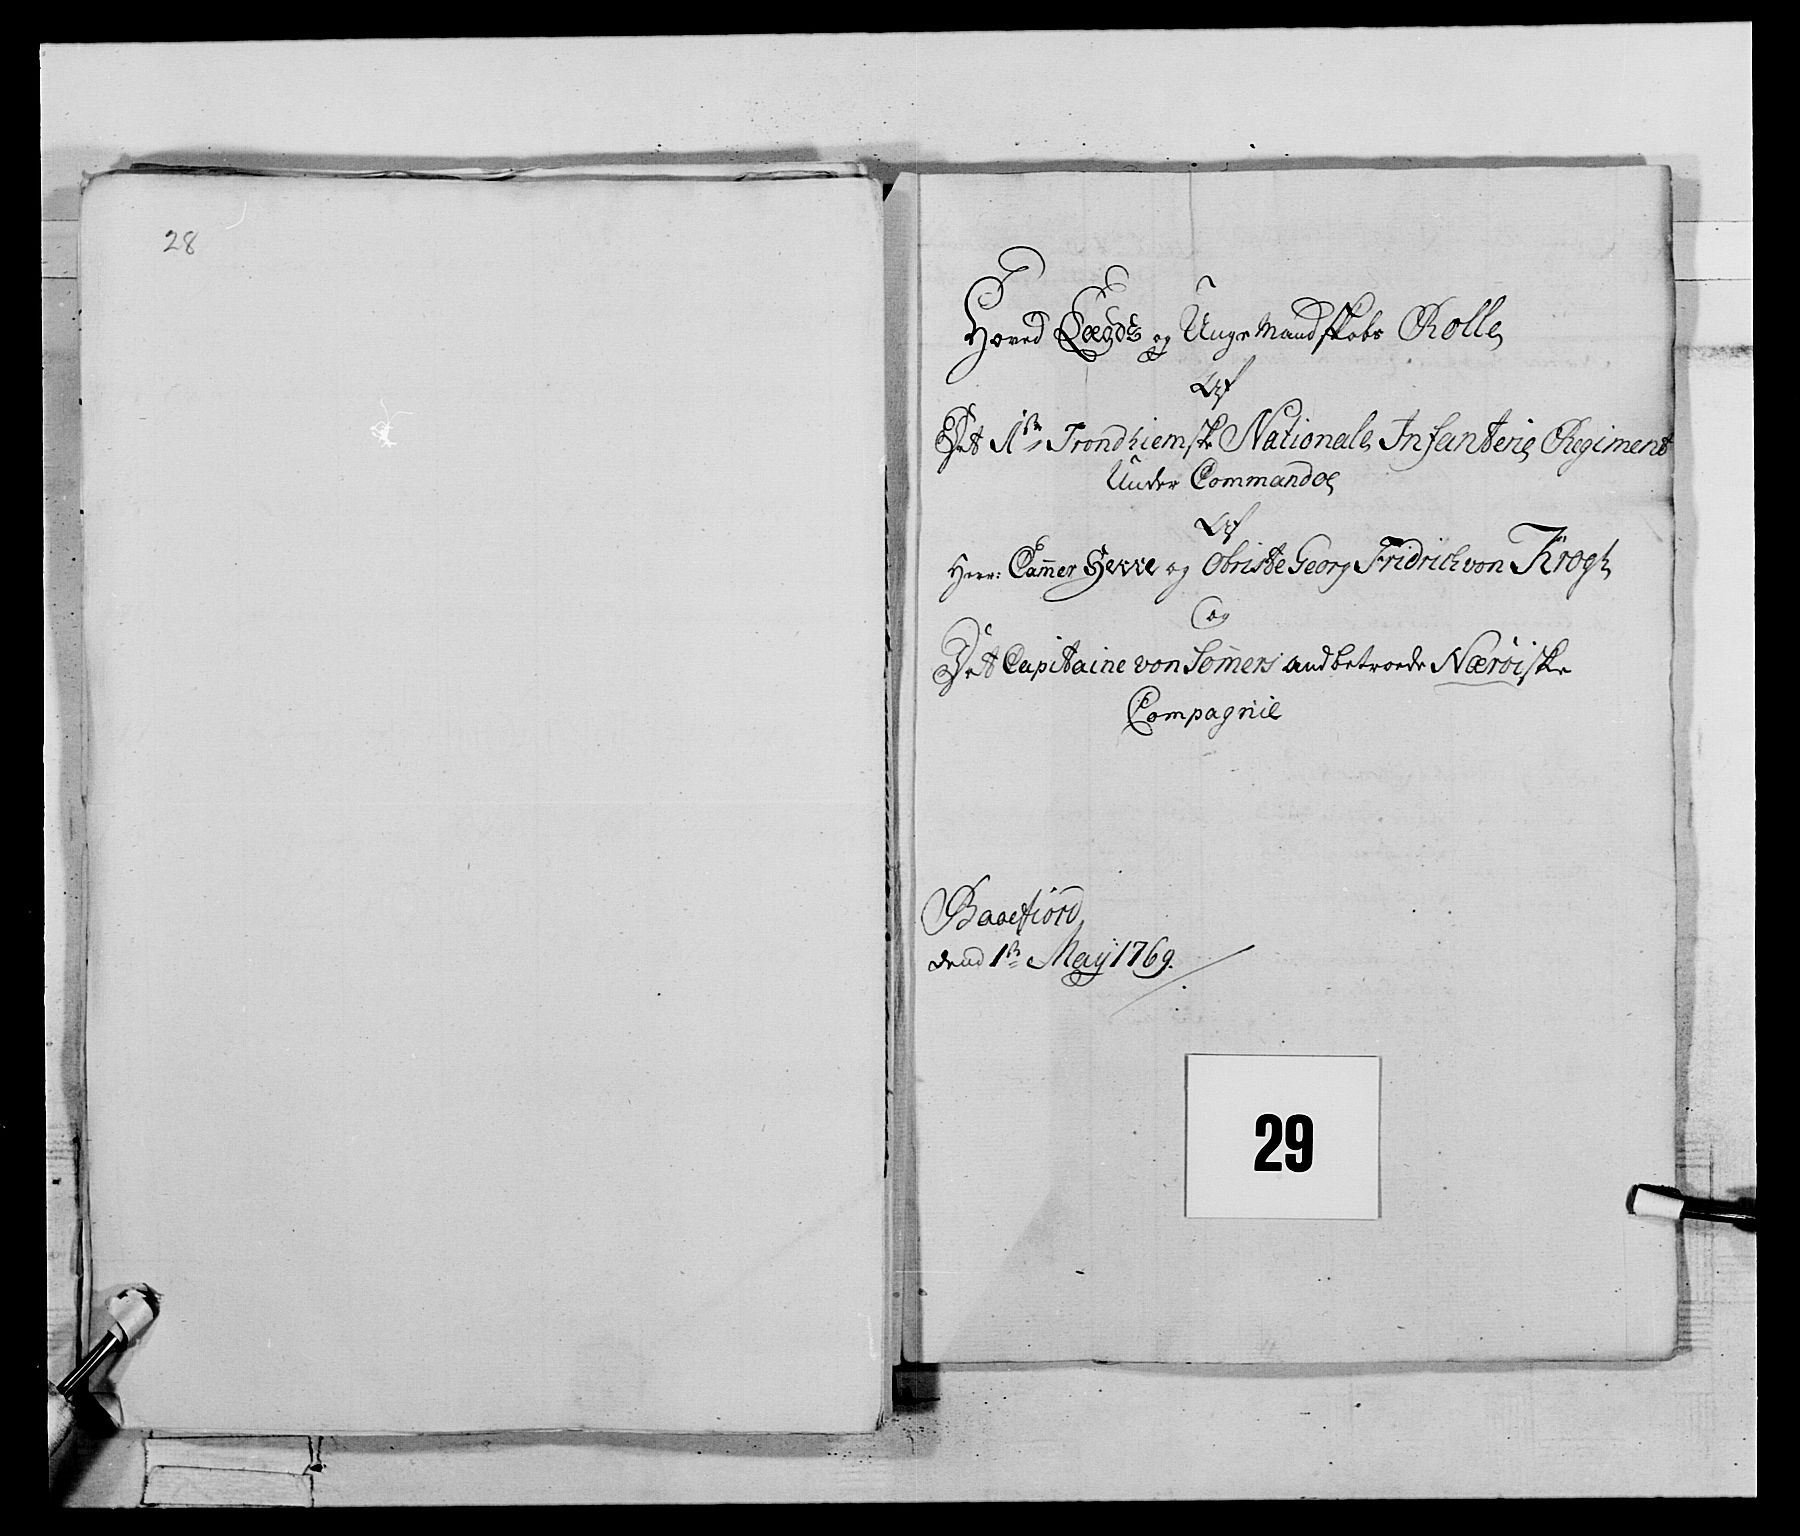 28
Hoved Lægds og Unge Mandskabs Rolle
Af
Det 1ste Trondhiemske Nationale Infanterie Regiment
Under Commando
Af
Herr: Cammer Herre og Obriste Georg Fridrich von Krogh
og
Det Capitaine von Somers andbetroede Nærøiske
Compagnie
dend 1ste May 1769.
29